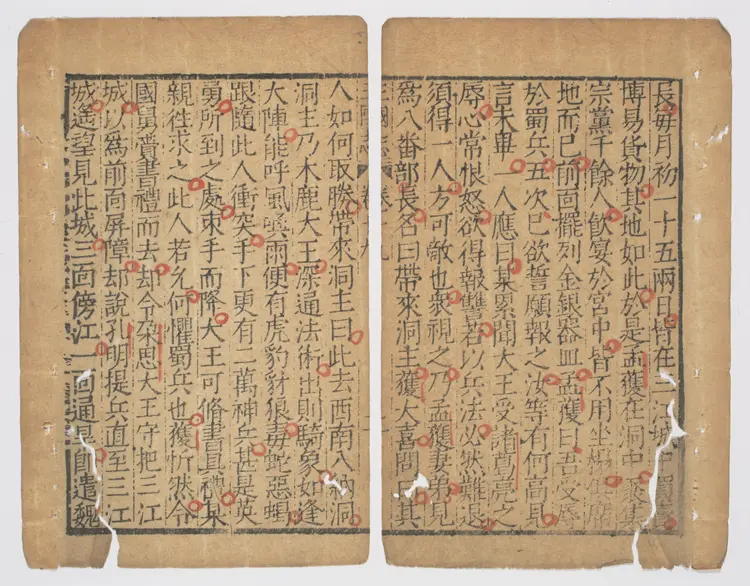 長毎月初一十五兩日皆在江城買
博易貨物其地如此於是孟獲在洞中聚集
宗黨千餘人飲宴於宮中皆不用坐榻席
地而已前面擺列金銀器皿孟獲曰吾受辱
於蜀兵五次已欲誓願報之汝等有何高見
言未畢一人應曰某累聞大王受諸葛亮之
辱心常恨怒欲得報讐若以兵法必然難退
須得一人方可敵也衆視之乃孟獲妻弟見
為八番部長名曰帶來洞主獲大喜問曰其
三國志 卷十九
人如何取勝帶來洞主曰此去西南八納洞
洞主乃木鹿大王深通法術出則騎象如逢
大陣能呼風喚雨便有虎豹豺狼毒蛇惡蝎
跟隨此人衝突手下更有二萬神兵甚是英
勇所到之處束手而降大王可修書具禮某
親徃求之此人若允何懼蜀兵也獲忻然令
國舅賫書禮而去却令朶思大王守把三江
城以為前面屏障却說孔明提兵直至三江
城遙望見此城三面傍江一面通旱即遣魏